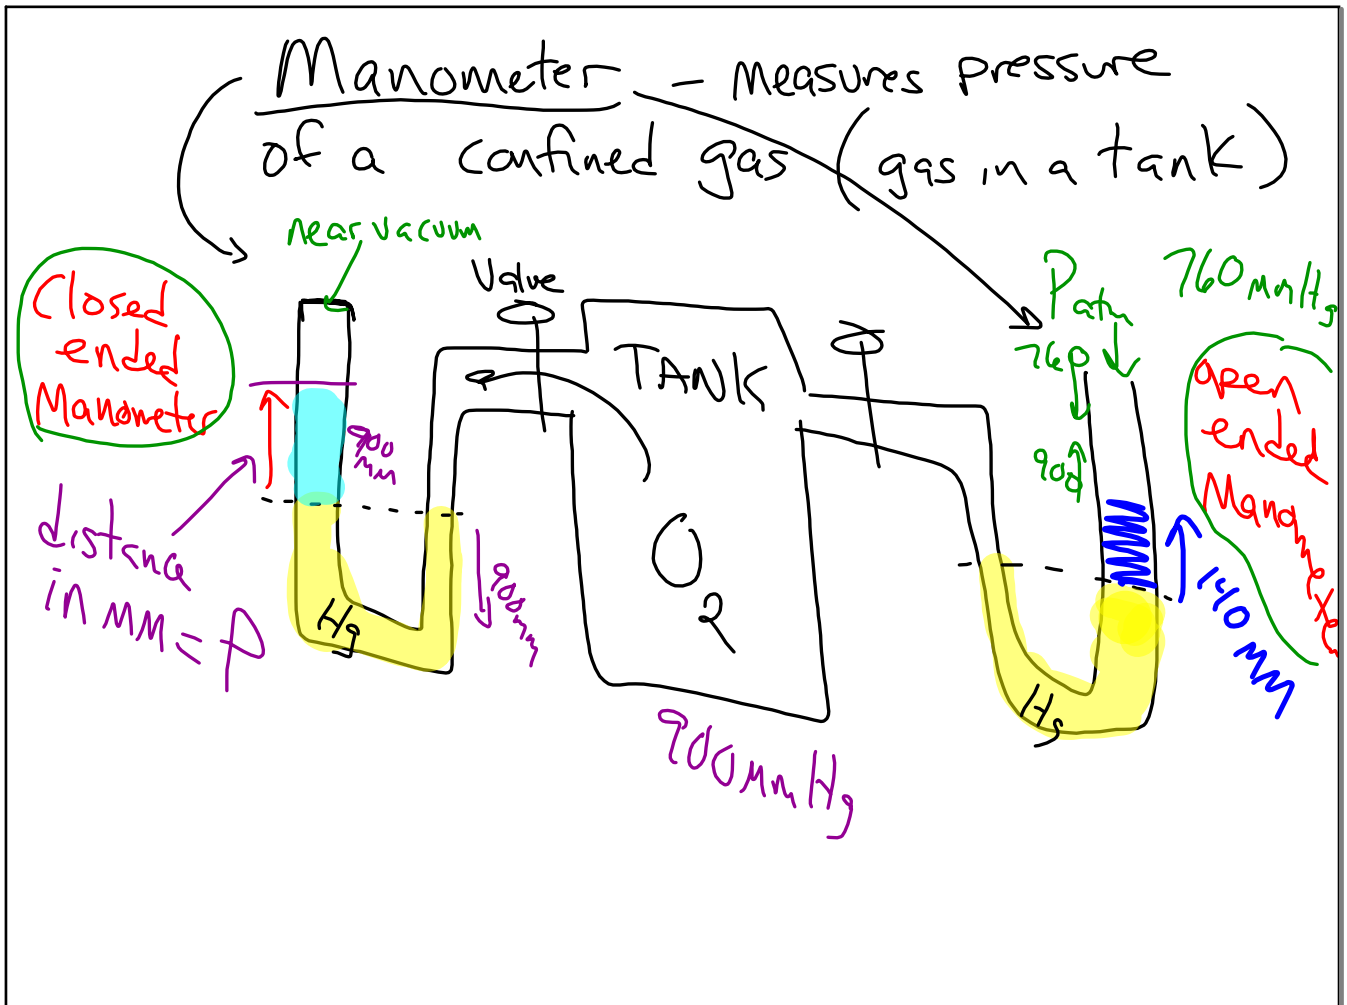 Manometer - measures pressure
of a confined gas (gas in a tank)
near vacuum
Closed
ended
Manometer
Valve
TANK
O2
900mmHg
900
mm
900mm
distance
in mm = P
Hg
Patm
760mmHg
760
900
open
ended
Manometer
140 mm
Hg